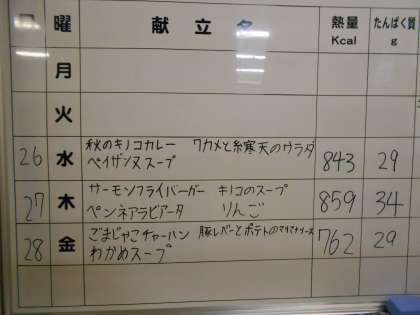 日 曜 献立名 熱量 Kcal たんぱく質 g
月
火
26 水 秋のキノコカレー ワカメと糸寒天のサラダ 843 29
ペイザンヌスープ
27 木 サーモンフライバーガー キノコのスープ 859 34
ペンネアラビアータ りんご
28 金 ごまじゃこチャーハン 豚レバーとポテトのマリアナソース 762 29
わかめスープ